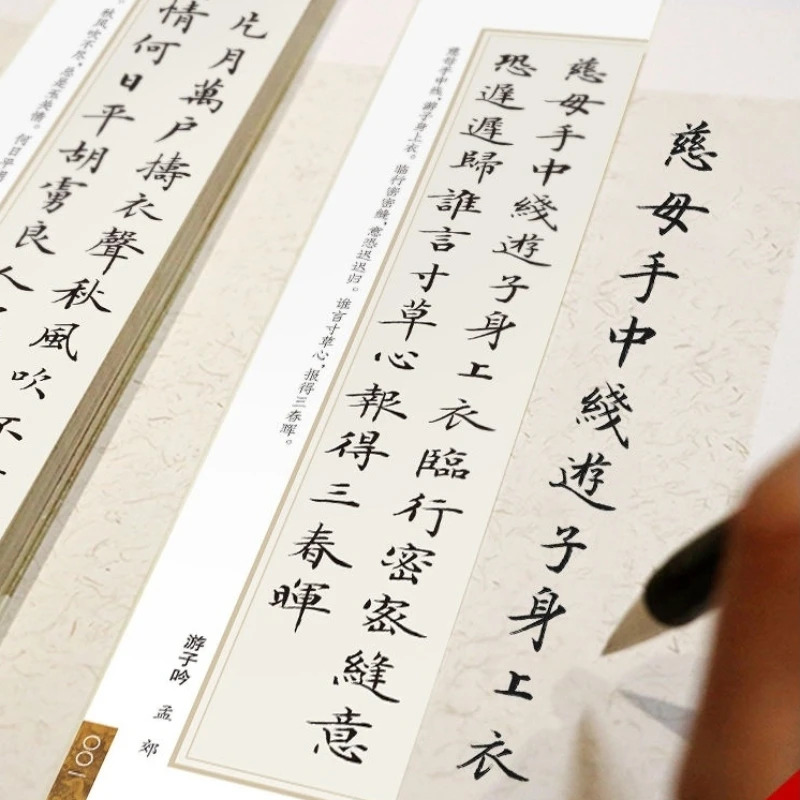 慈母手中綫遊子身上衣
慈母手中綫遊子身上衣臨行密密縫意
恐遲遲歸誰言寸草心報得三春暉
慈母手中线，游子身上衣。临行密密缝，意恐迟迟归。谁言寸草心，报得三春晖。
游子吟 孟郊
〇〇一
片月萬戶擣衣聲秋風吹不
情何日平胡虜良人
秋风吹不尽，总是玉关情。何日平胡